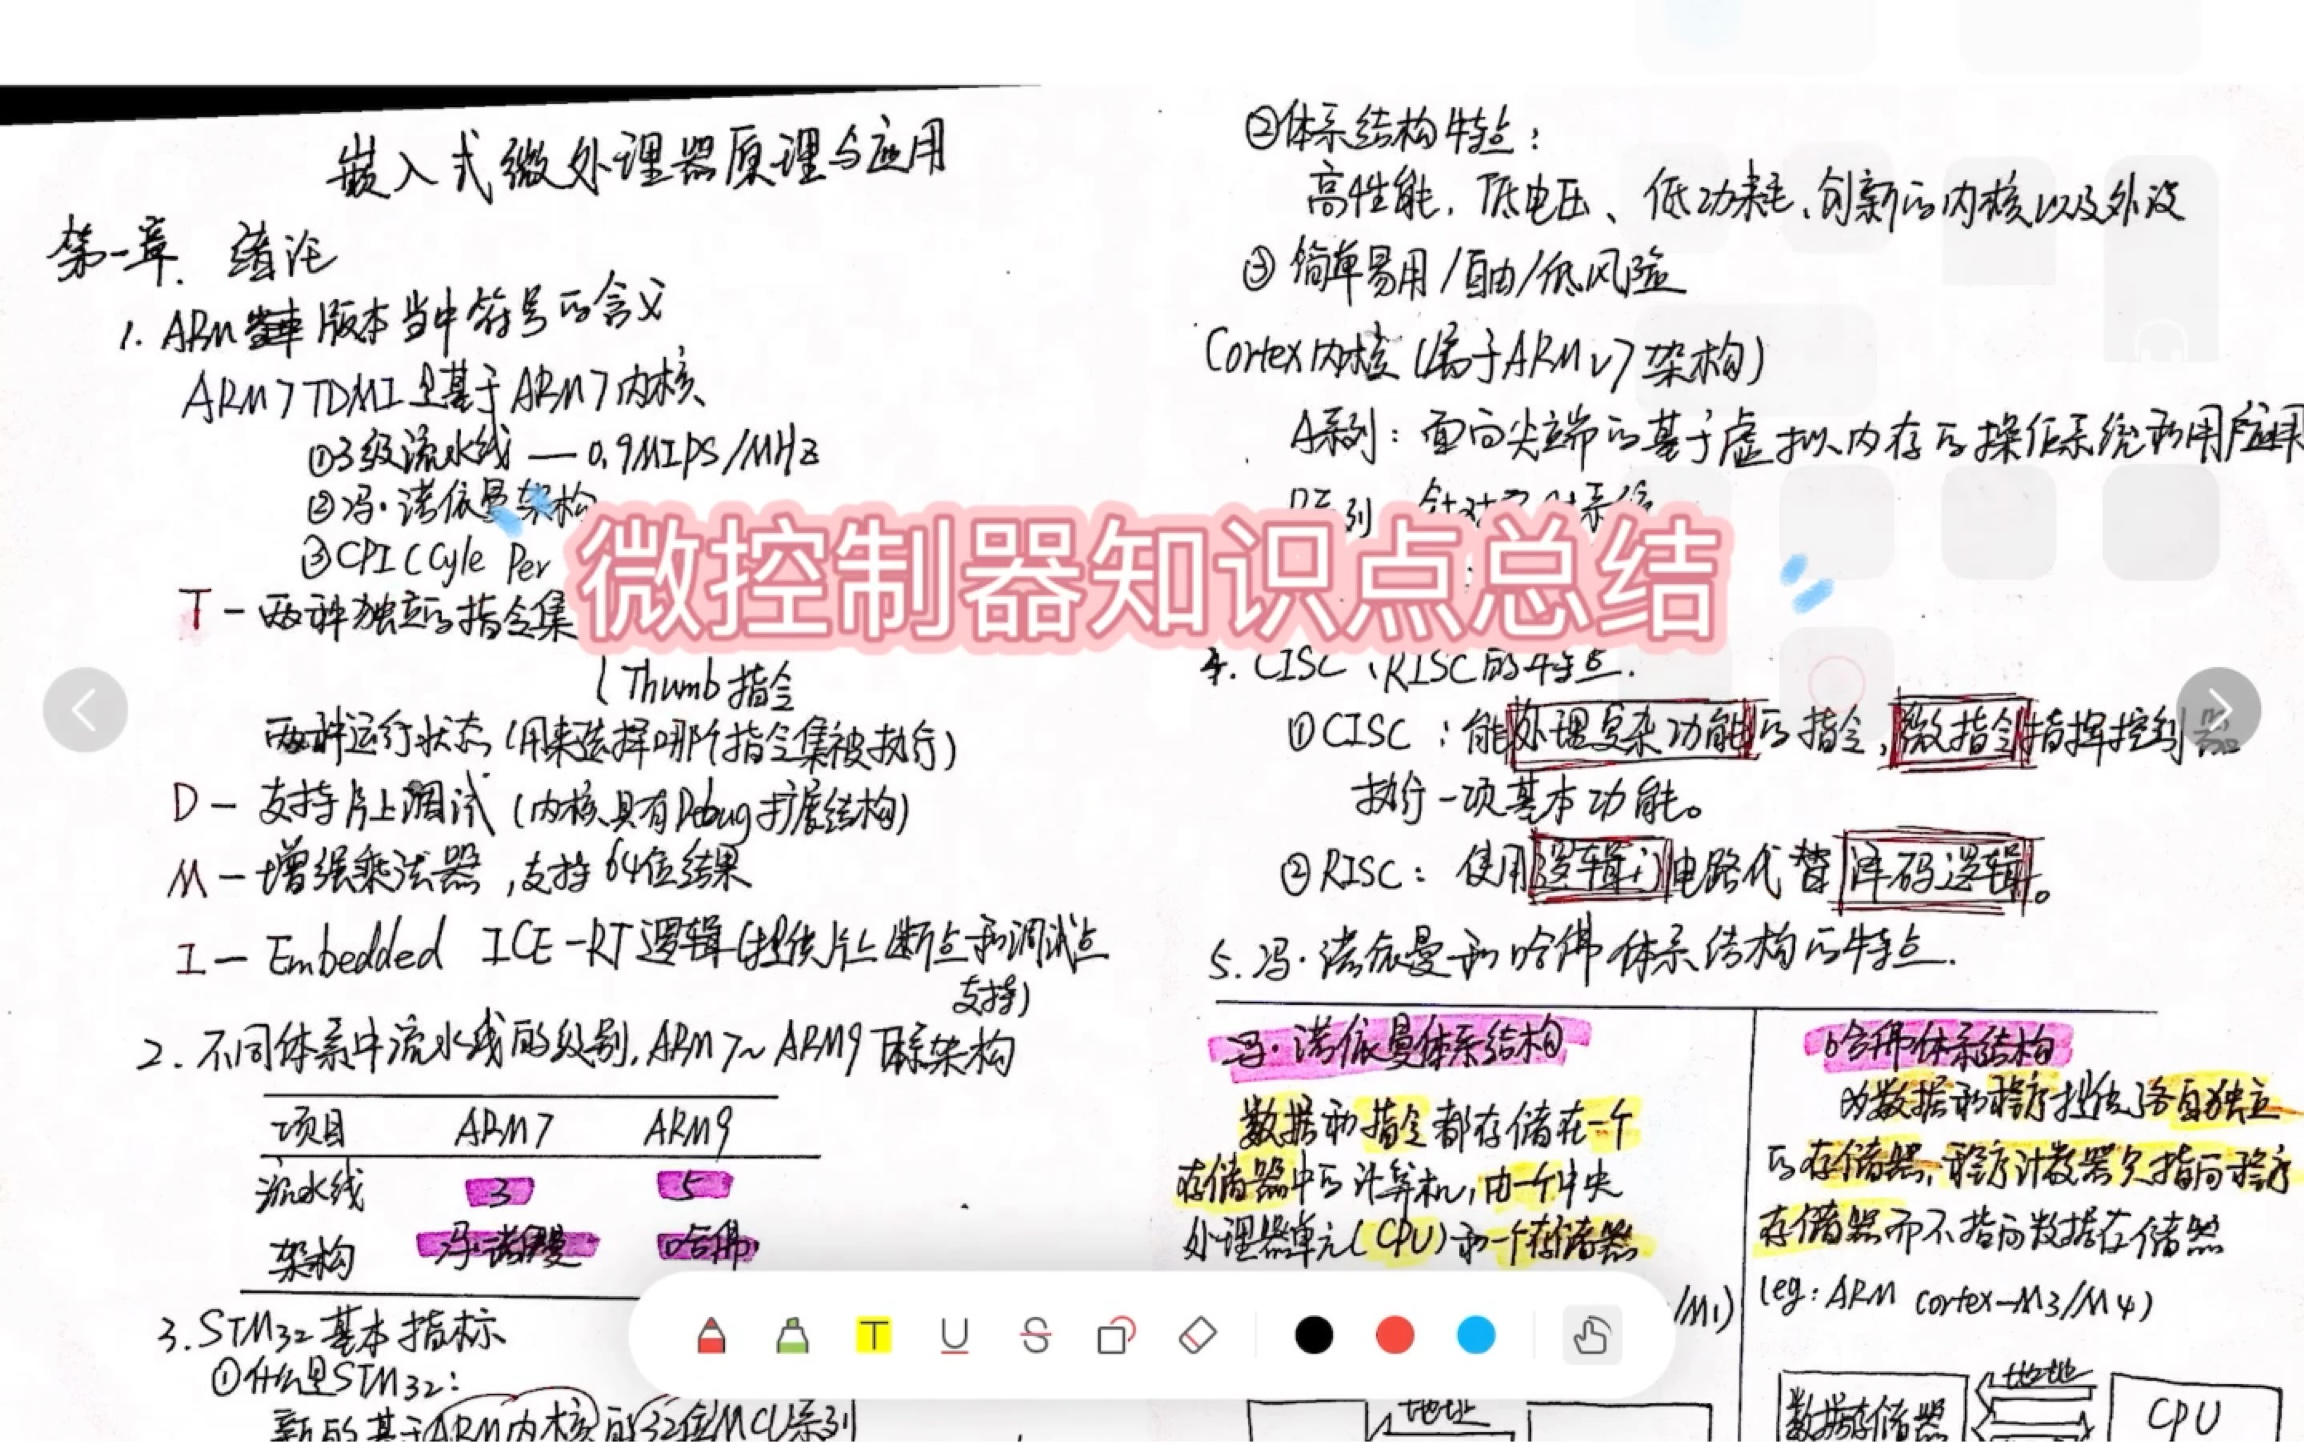 嵌入式微处理器原理与应用
第一章. 绪论
1. ARM 版本当中符号的含义
ARM7TDMI是基于ARM7内核
①3级流水线 — 0.9MIPS/MHZ
②冯·诺依曼架构
③CPI(Cyle Per
T - 两种独立的指令集
Thumb指令
两种运行状态(用来选择哪个指令集被执行)
D - 支持片上调试(内核具有Debug扩展结构)
M - 增强乘法器,支持64位结果
I - Embedded ICE-RT逻辑(提供片上断点和调试点
支持)
2.不同体系中流水线的级别,ARM7~ARM9体系架构
项目 ARM7 ARM9
流水线 3 5
架构 冯·诺依曼 哈佛
3.STM32基本指标
①什么是STM32:
新的基于ARM内核的32位MCU系列
微控制器知识点总结
②体系结构特点:
高性能、低电压、低功耗、创新的内核以及外设
③简单易用/自由/低风险
Cortex内核(属于ARMv7架构)
A系列:面向尖端的基于虚拟内存的操作系统和用户应用
4. CISC、RISC的特点.
①CISC:能处理复杂功能的指令,微指令指挥控制器
执行一项基本功能。
②RISC:使用逻辑门电路代替译码逻辑。
5.冯·诺依曼和哈佛体系结构的特点.
冯·诺依曼体系结构
数据和指令都存储在一个
存储器中的计算机,由一个中央
处理器单元(CPU)和一个存储器
/M1)
地址
哈佛体系结构
为数据和程序提供了各自独立
的存储器,程序计数器只指向程序
存储器而不指向数据存储器
(eg:ARM cortex-M3/M4)
地址
数据存储器 CPU
T U S